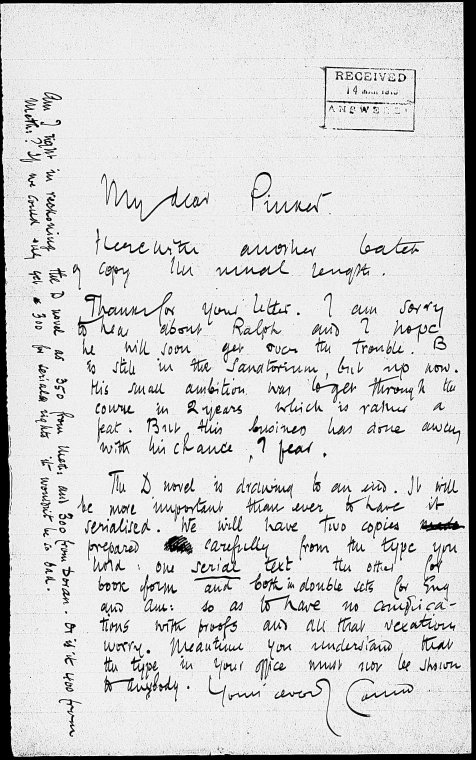 RECEIVED
14 MAR 1913
ANSWERED
My dear Pinker.
Herewith another batch
of copy the usual length.
Thanks for your letter. I am sorry
to hear about Ralph and I hope
he will soon get over the trouble. B
is still in the Sanatorium, but up now.
His small ambition was to get through the
course in 2 years which is rather a
feat. But this business has done away
with his chance, I fear.
The D novel is drawing to an end. It will
be more important than ever to have it
serialised. We will have two copies
prepared carefully from the type you
hold: one serial text the other for
book form and both in double sets for Eng
and Am: so as to have no complica-
tions with proofs and all that vexatious
worry. Meantime you understand that
the type in your office must not be shown
to anybody. Yours ever Conrad
Am I right in reckoning the D novel as 350 from Meth: and 300 from Doran. Or is it 400 from
Meth:? If we could only get a 300 for serial rights it wouldn't be so bad.